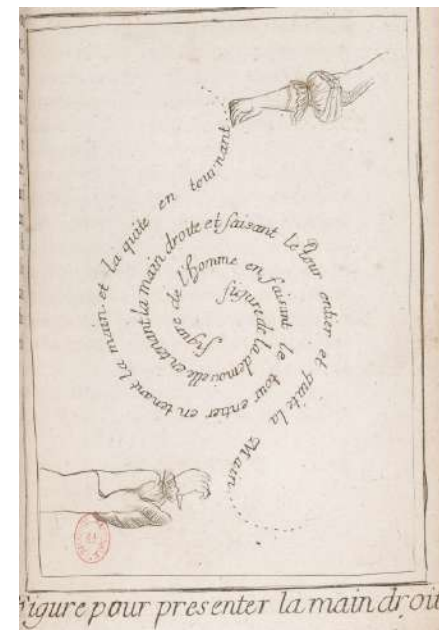 figure de l'homme en faisant le tour entier en tenant la main. et la quite en tournant
figure de la demoiselle en tenant la main droite et faisant le Tour entier et quite la Main
figure pour presenter la main droit